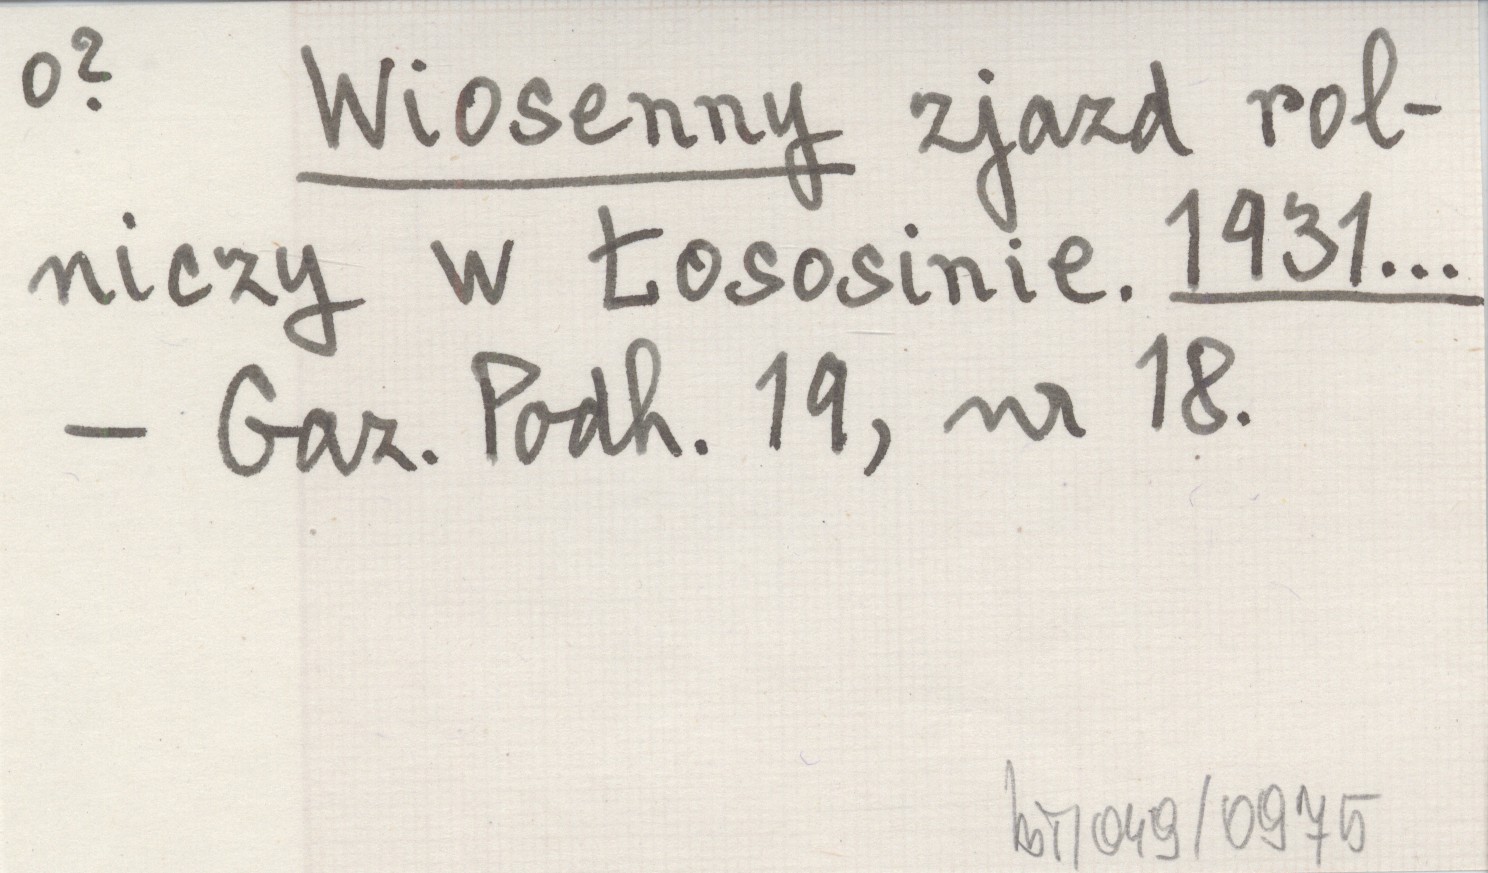 o? Wiosenny zjazd rol-
niczy w Łososinie. 1931...
— Gaz. Podh. 19, nr 18.
049/0975